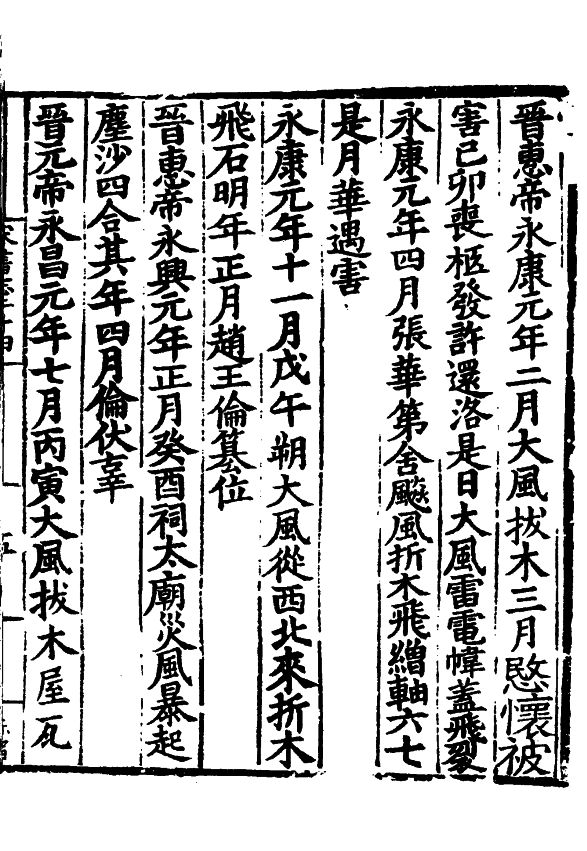 晉惠帝永康元年二月大風拔木三月愍懷被
害己卯喪柩發許還洛是日大風雷電幃蓋飛裂
永康元年四月張華第舍飈風折木飛繒軸六七
是月華遇害
永康元年十一月戊午朔大風從西北來折木
飛石明年正月趙王倫簒位
晉惠帝永興元年正月癸酉祠太廟災風暴起
塵沙四合其年四月倫伏辜
晉元帝永昌元年七月丙寅大風拔木屋瓦